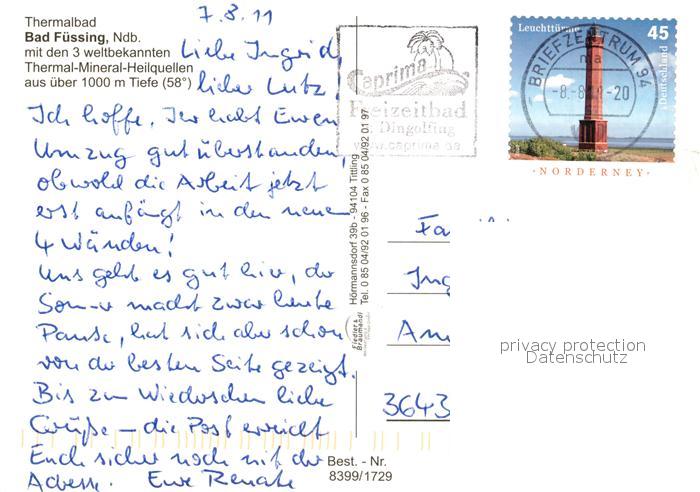 7.8.11
Thermalbad
Bad Füssing, Ndb.
mit den 3 weltbekannten
Thermal-Mineral-Heilquellen
aus über 1000 m Tiefe (58°)
Liebe Ingrid,
lieber Lutz!
Ich hoffe, Ihr habt Euren
Umzug gut überstanden,
obwohl die Arbeit jetzt
erst anfängt in den neuen
4 Wänden!
Uns geht es gut hier, der
Sommer macht zwar heute
Pause, hat sich aber schon
von der besten Seite gezeigt.
Bis zum Wiedersehen liebe
Grüße – die Post erreicht
Euch sicher noch mit der
Adresse. Eure Renate
Hörmannsdorf 39b - 94104 Tittling
Tel. 0 85 04/92 01 96 - Fax 0 85 04/92 01 97
Fiedler &
Braumandl
Best. - Nr.
8399/1729
Caprima
Freizeitbad
Dingolfing
www.caprima.de
Leuchttürme
45
Deutschland
NORDERNEY
BRIEFZENTRUM 94
ma
-8.-8.11-20
Fa
Ing
Am
3643
privacy protection
Datenschutz